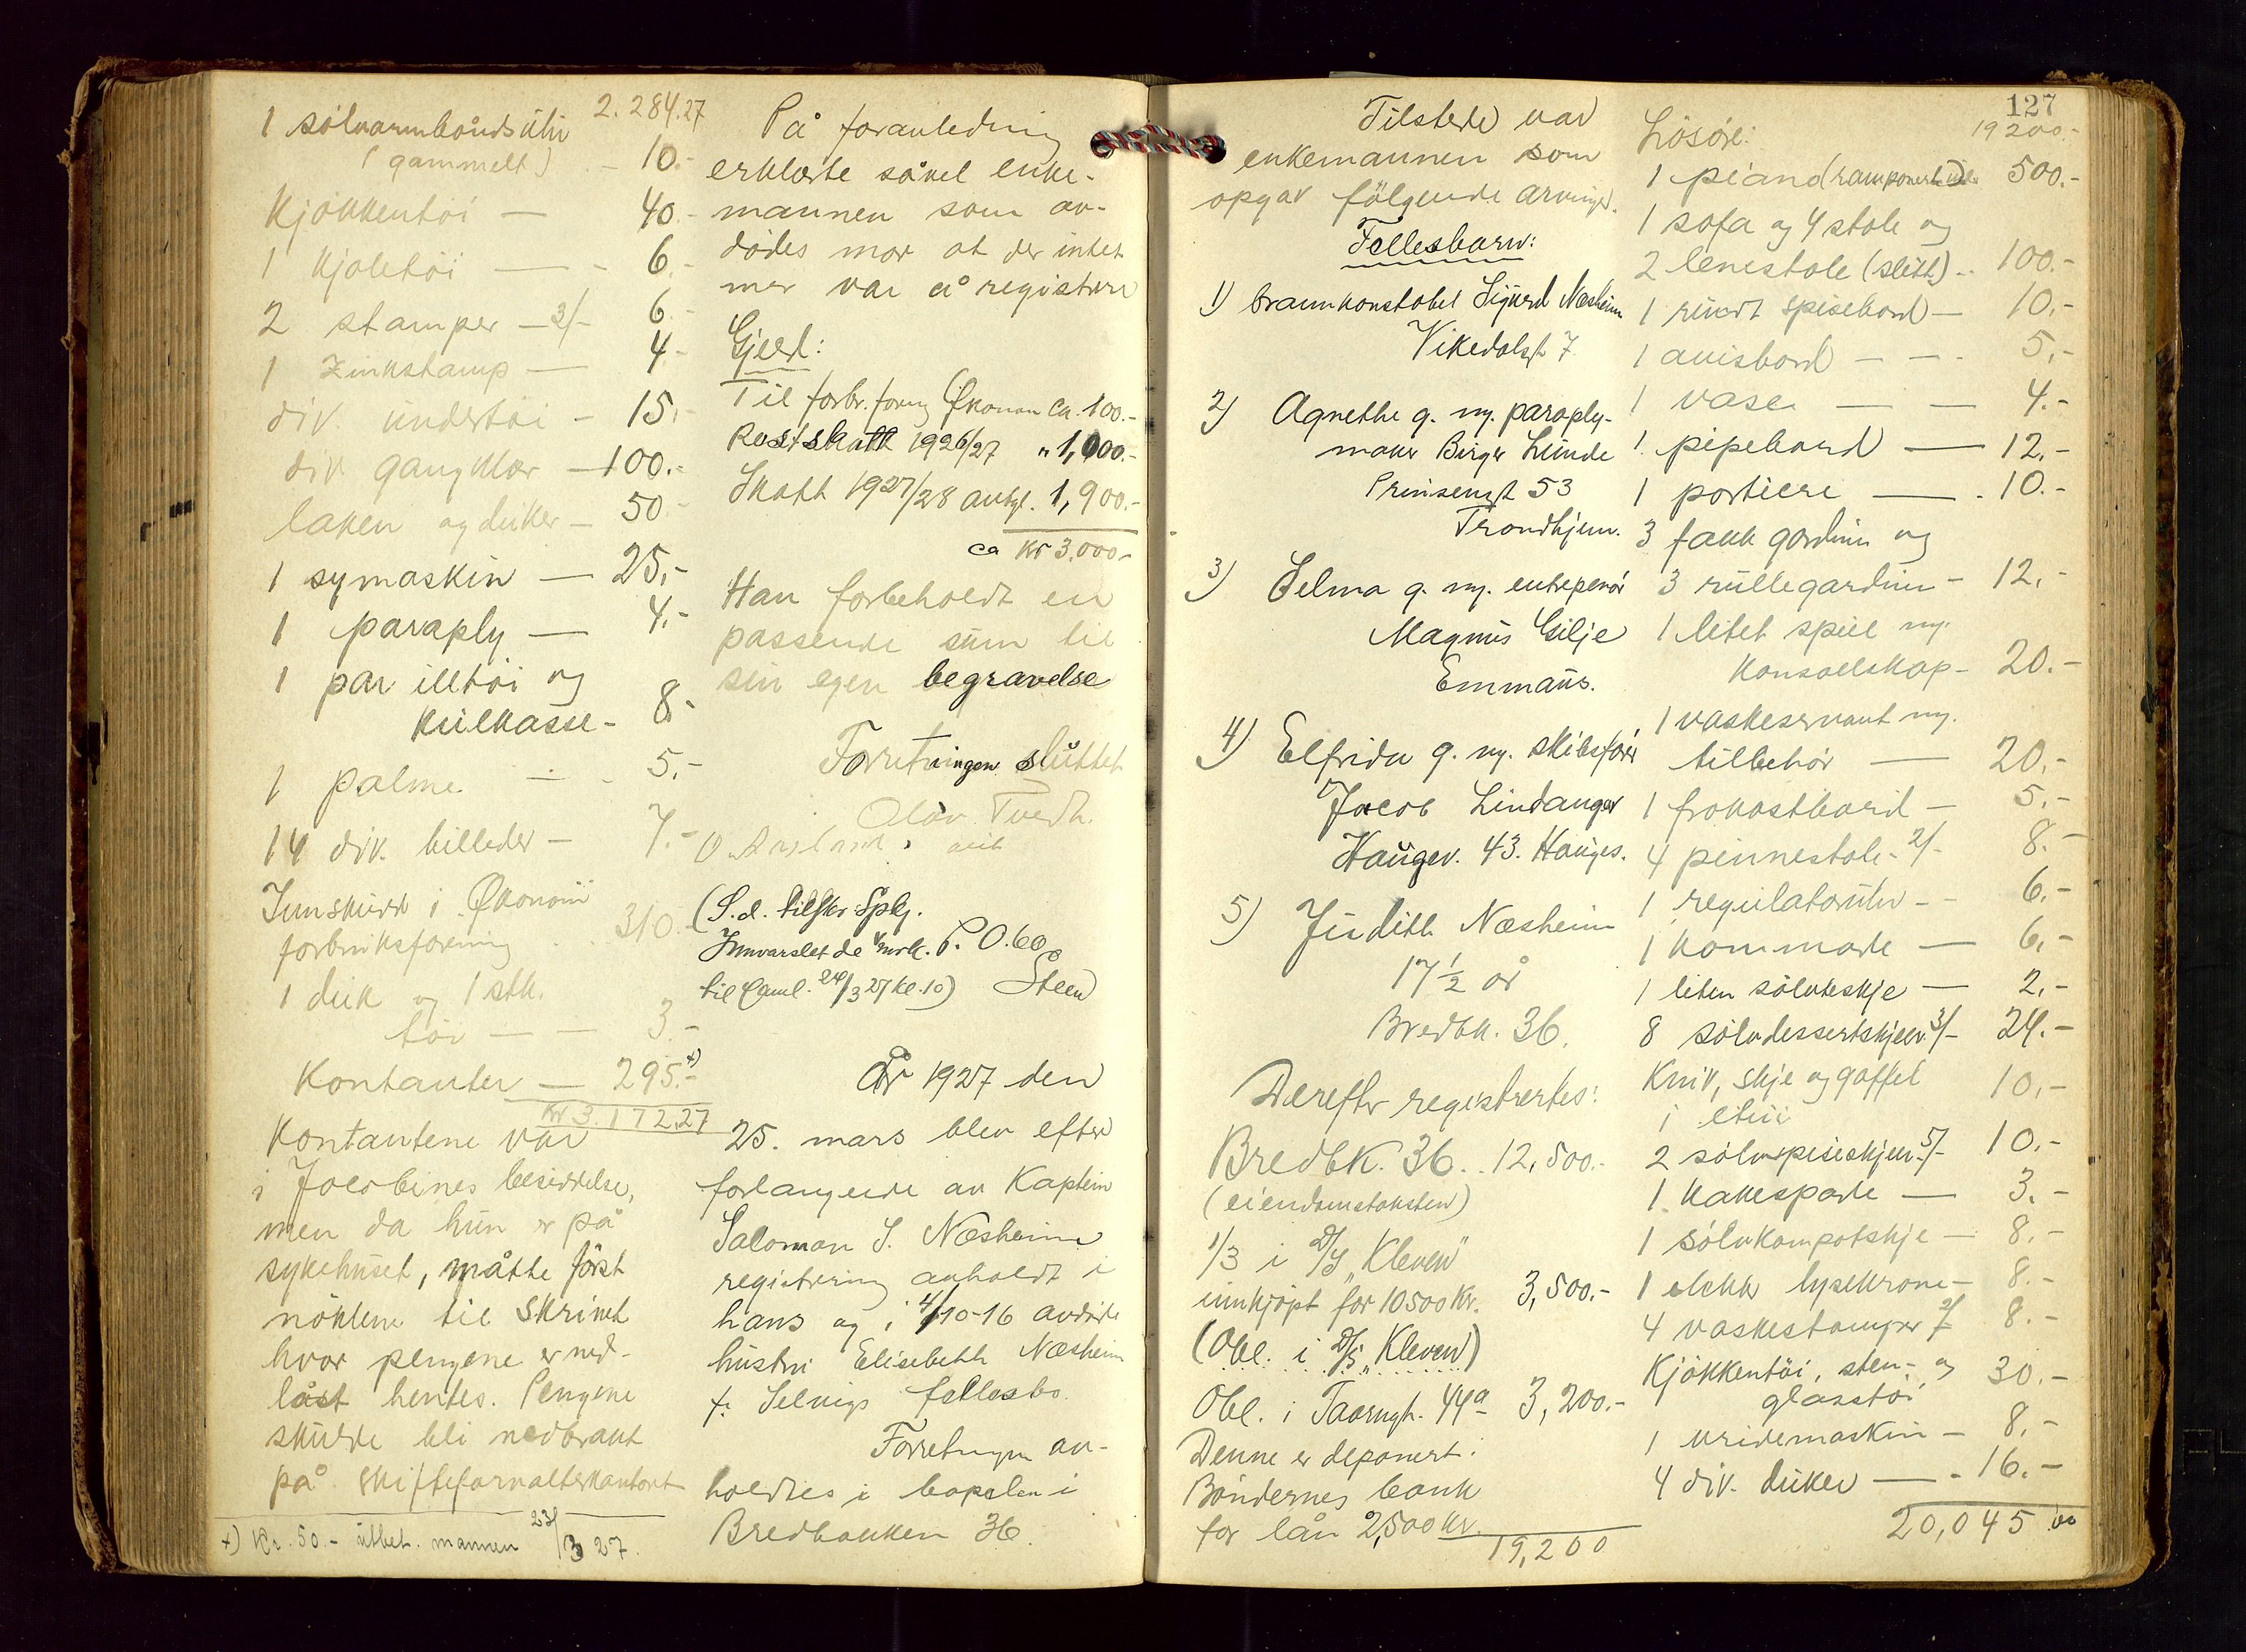 2.284.27
1 sølvarmbåndsuhr
(gammelt) - 10.-
Kjøkkentøi - 40.-
1 kjoletøi - - 6.-
2 stamper - 3/- 6.-
1 zinkstamp - 4.-
div. undertøi - 15.-
div. gangklær - 100.-
laken og duker - 50.-
1 symaskin - 25,-
1 paraply - 4.-
1 par illtøi og
kulkasse - 8.-
1 palme - - 5.-
14 div. billeder - 7.-
Innskudd i Økonomi
forbruksforening . . 310.-
1 duk og 1 stk.
tøi - - 3.-
Kontanter - 295.- x)
Kr 3.172.27
Kontantene var
i Jocobines besiddelse,
men da hun er på
sykehuset, måtte først
nøklene til skrinet
hvor pengene er ned-
låst hentes. Pengene
skulde bli nedbrakt
på skifteforvalterkontoret
x) Kr. 50.- utbet. mannen 23/3 27.
På foranledning
erklærte såvel enke-
mannen som av-
dødes mor at der intet
mer var å registrere
Gjeld:
Til forbr.foren. Økonom ca. 100.-
Restskatt 1926/27 " 1,000.-
Skatt 1927/28 antgl. 1,900.-
ca Kr 3.000.-
Han forbeholdt en
passende sum til
sin egen begravelse
Forretningen sluttet
Olav Tvedt.
(S.d. tilskr. Spkj.
P. O. 60
til Gaml. 24/3 27 kl. 10) Steen
År 1927 den
25. mars blev efter
forlangende av Kaptein
Salomon S. Næsheim
registrering avholdt i
hans og i 4/10-16 avdøde
hustru Elisebeth Næsheim
f. Selvigs fellesbo.
Forretningen av-
holdtes i bopelen i
Bredbakken 36.
127
Tilstede var
enkemannen som
opgav følgende arvinger.
Fellesbarn:
1) brannkonstabel Sigurd Næsheim
Vikedalsgt 7
2) Agnethe g. m. paraply-
maker Birger Lunde
Prinsensgt 53
Trondhjem.
3) Selma g. m. entrepenør
Magnus Gilje
Emmaus.
4) Elfrida g. m. skibsfører
Jacob Lindanger
Haugev. 43. Hauges.
5) Judith Næsheim
17 1/2 år
Bredbk. 36.
Derefter registrertes:
Bredbk. 36. . 12,500.-
(eiendomstaksten)
1/3 i D/S "Kleven"
innkjøpt for 10500 Kr. 3,500.-
(Obl. i D/S "Kleven")
Obl. i Taarngt. 44a 3,200.-
Denne er deponert i
Bøndernes bank
for lån 2,500 Kr.
19,200
Løsøre: 19200.-
1 piano (ramponert) 500.-
1 sofa og 4 stole og
2 lenestole (slitt) - 100.-
1 rundt spisebord - 10.-
1 avisbord - - - 5.-
1 vase - - 4.-
1 pipebord - 12.-
1 portiere - 10.-
3 fakk gardiner og
3 rullegardiner - 12.-
1 litet speil m.
konsollskap - 20.-
1 vaskeservant m.
tilbehør - 20.-
1 frokostbord - 5.-
4 pinnestole - 2/- 8.-
1 regulatoruhr - - 6.-
1 kommode - 6,-
1 liten sølvteskje - 2,-
8 sølvdessertskjeer 3/- 24.-
Kniv, skje og gaffel
i etui 10,-
2 sølvspiseskjeer 5/- 10.-
1 kakespade - 3.-
1 sølvkompotskje - 8.-
1 elektr lysekrone - 8.-
4 vaskestamper 2/- 8.-
Kjøkkentøi, sten- og
glasstøi 30.-
1 vridemaskin - 8,-
4 div. duker - 16.-
20,045 00